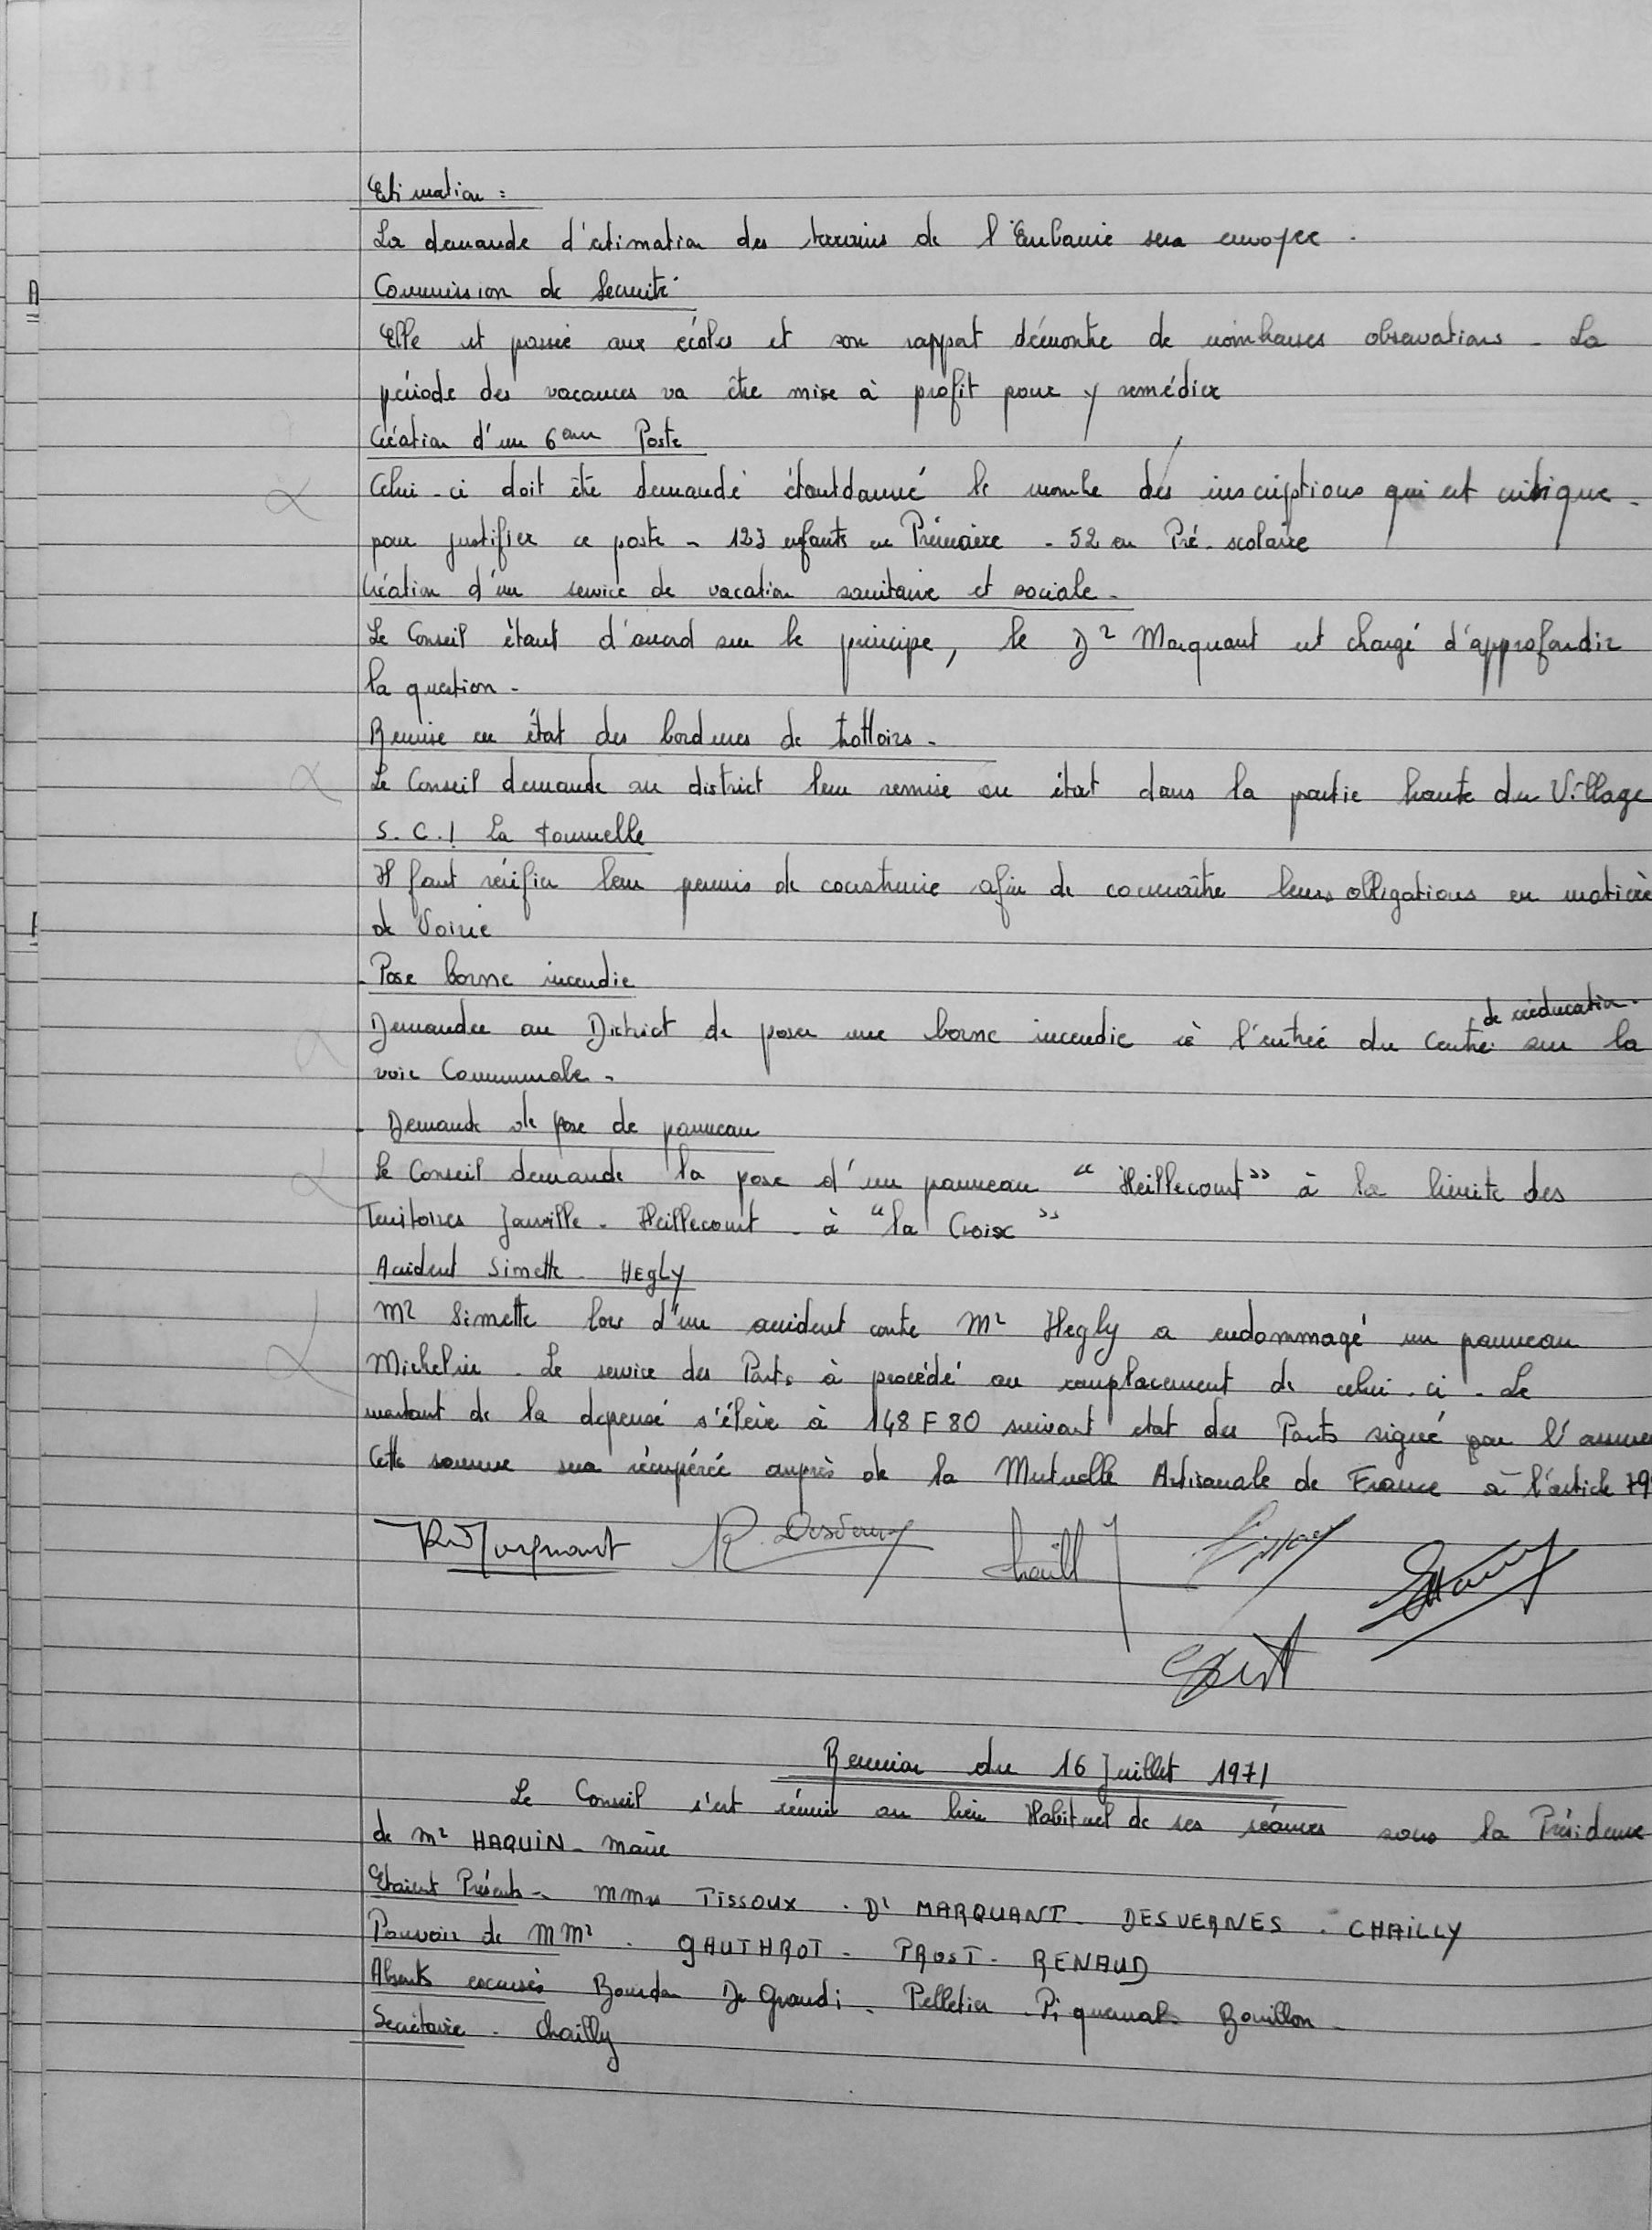 Estimation :
La demande d'estimation des terrains de l'Embanie sera envoyée.
Commission de Sécurité
Elle est passée aux écoles et son rapport démontre de nombreuses observations - La
période des vacances va être mise à profit pour y remédier
Création d'un 6eme Poste
Celui-ci doit être demandé étantdonné le nombre des inscriptions qui est critique -
pour justifier ce poste - 123 enfants en Primaire - 52 en Pré-scolaire
Création d'un service de vacation sanitaire et sociale -
Le Conseil étant d'accord sur le principe, le Dr Marquant est chargé d'approfondir
la question -
Remise en état des bordures de trottoirs -
Le Conseil demande au district leur remise en état dans la partie haute du Village
S.C.I La tournelle
Il faut vérifier leur permis de construire afin de connaître leurs obligations en matière
de Voirie
- Pose borne incendie
de rééducation -
Demander au District de poser une borne incendie à l'entrée du Centre sur la
voie Communale -
- Demande de pose de panneau
Le Conseil demande la pose d'un panneau "Heillecourt" à la limite des
Territoires Jarville - Heillecourt - à "la Croix"
Accident Simette - HEGLY
Mr Simette lors d'un accident contre Mr Hegly a endommagé un panneau
Michelin - Le service des Ponts à procédé au remplacement de celui-ci - Le
montant de la depense s'élève à 148 F 80 suivant etat des Ponts signé par l'
Cette somme sera récupérée auprès de la Mutuelle Artisanale de France à l'article 79
Marquant R. Desvernes Chailly
Reunion du 16 Juillet 1971
Le Conseil s'est réuni au lieu Habituel de ses séances sous la Présidence
de Mr HAQUIN - Maire
Etaient Présents - MMrs TISSOUX - Dr MARQUANT - DESVERNES - CHAILLY
Pouvoir de MMr - GAUTHROT - PROST - RENAUD
Absents excusés Bourdon De Grandi - Pelletier - Piquemal - Bouillon -
Secrétaire - Chailly